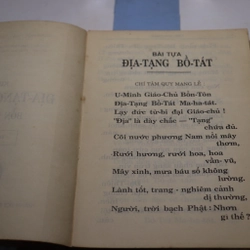 BÀI TỰA
ĐỊA-TẠNG BỒ-TÁT
CHÍ TÂM QUY MẠNG LỄ
U-Minh Giáo-Chủ Bổn-Tôn
Địa-Tạng Bồ-Tát Ma-ha-tát.
Lạy đức từ-bi đại giáo-chủ!
"Địa" là dày chắc — "Tạng"
chứa đủ.
Cõi nước phương Nam nổi mây
thơm,
Rưới hương, rưới hoa, hoa
vần-vũ,
Mây xinh, mưa báu số không
lường,
Lành tốt, trang-nghiêm cảnh
dị thường,
Người, trời bạch Phật: Nhơn
gì thế?